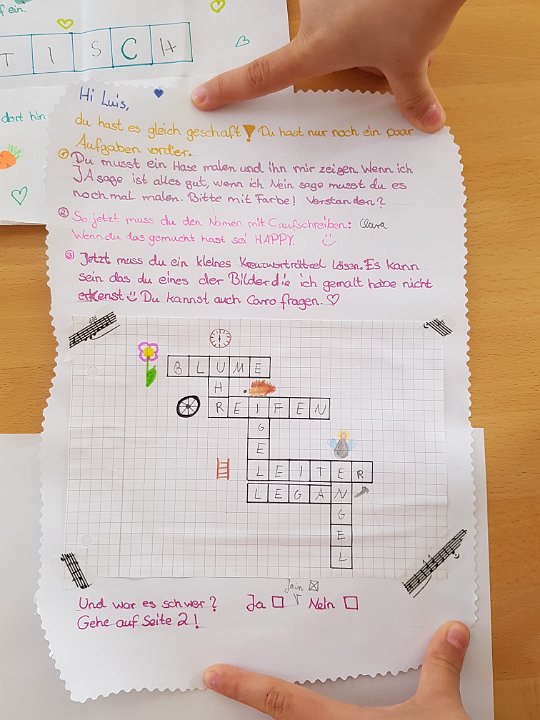 f ein.
T I S C H
dort hin
Hi Luis,
du hast es gleich geschaft! Du hast nur noch ein paar
Aufgaben vordier.
1 Du musst ein Hase malen und ihn mir zeigen. Wenn ich
JA sage ist alles gut, wenn ich Nein sage musst du es
noch mal malen. Bitte mit Farbe! Verstanden?
2 So jetzt muss du den Namen mit C aufschreiben: Clara
Wenn du das gemacht hast sei HAPPY.
3 Jetzt muss du ein kleines Kreuzworträtzel lösen. Es kann
sein das du eines der Bilder die ich gemalt habe nicht
erkenst Du kannst auch Carro fragen.
BLUME
H
REIFEN
G
E
LEITER
LEGAN
G
E
L
Jain
Und war es schwer? Ja Nein
Gehe auf Seite 2!